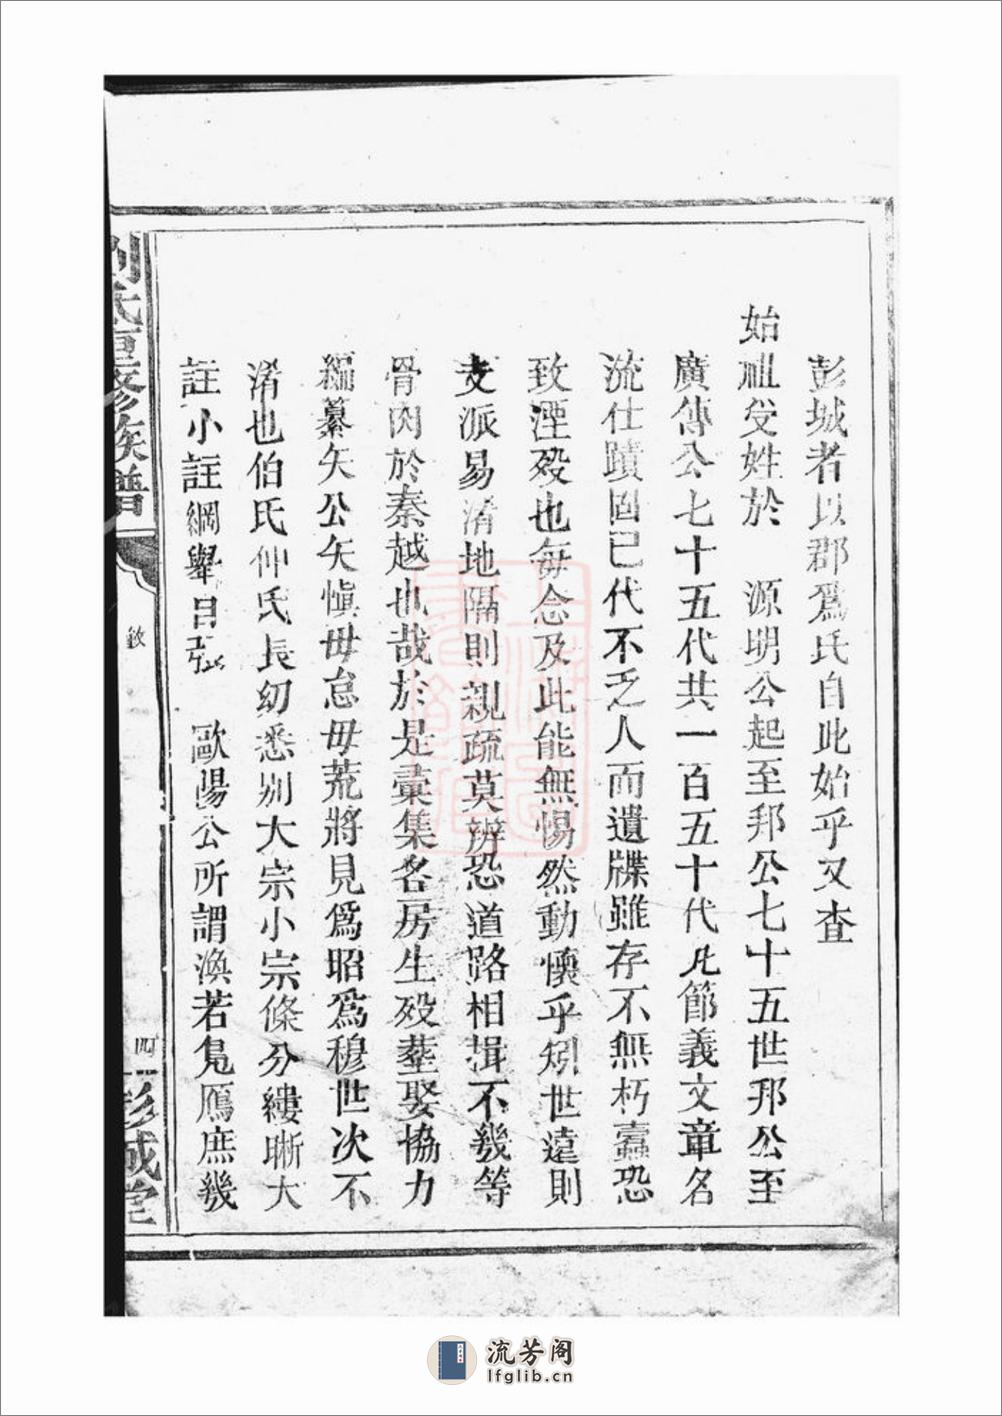 彭城者以郡爲氏自此始乎又查
始祖受姓於　源明公起至邦公七十五世邦公至
廣傳公七十五代共一百五十代凡節義文章名
流仕蹟固已代不乏人而遺牒雖存不無朽蠹恐
致湮歿也每念及此能無惕然動懷乎矧世遠則
支派易淆地隔則親疏莫辨恐道路相揖不幾等
骨肉於秦越也哉於是彙集各房生歿塟娶協力
編纂矢公矢愼毋怠毋荒將見爲昭爲穆世次不
淆也伯氏仲氏長幼悉别大宗小宗條分縷晰大
註小註綱舉目張　歐陽公所謂渙若鳬鴈庶幾
劉氏重修族譜
欽
四
彭城堂
上海圖書館藏
流芳阁
lfglib.cn